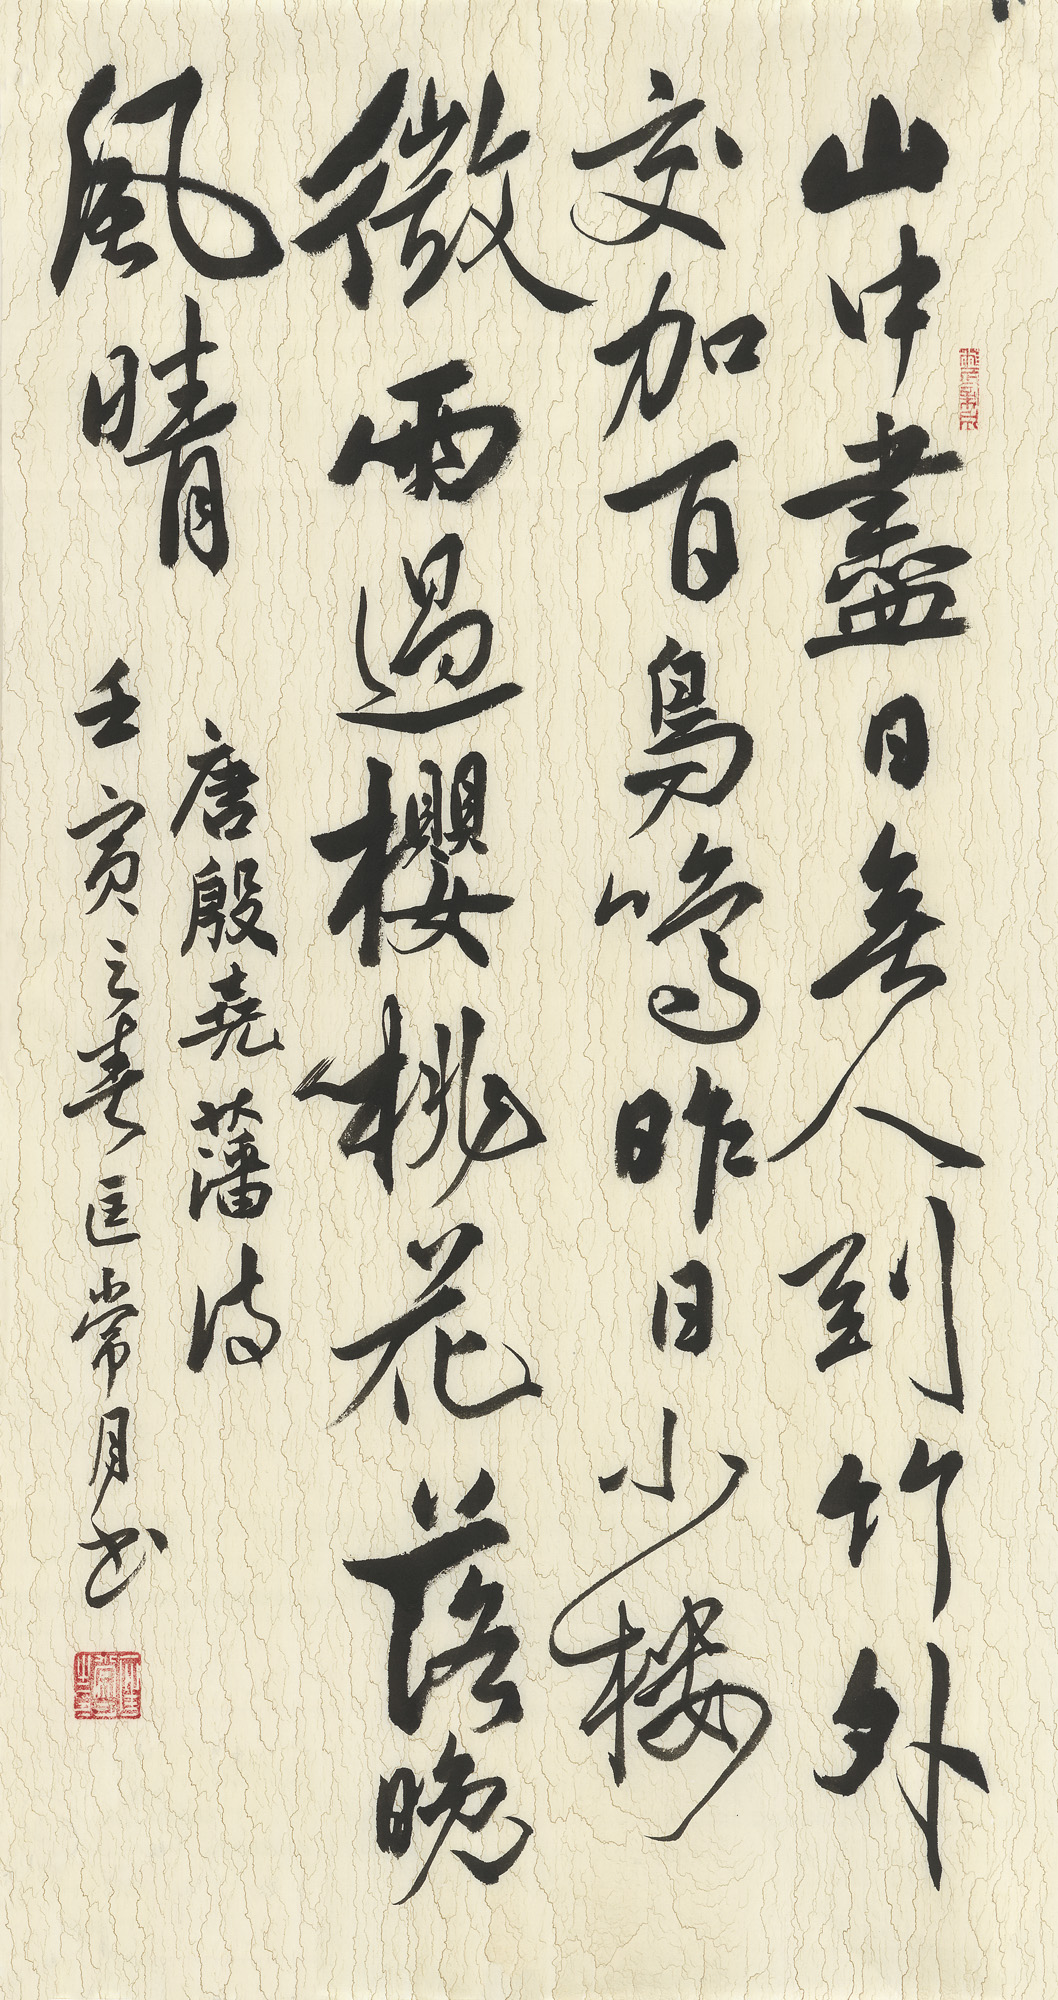 山中盡日無人到竹外
交加百鳥鳴昨日小樓
微雨過櫻桃花落晚
風晴
唐殷堯藩詩
壬寅之春匡常月书